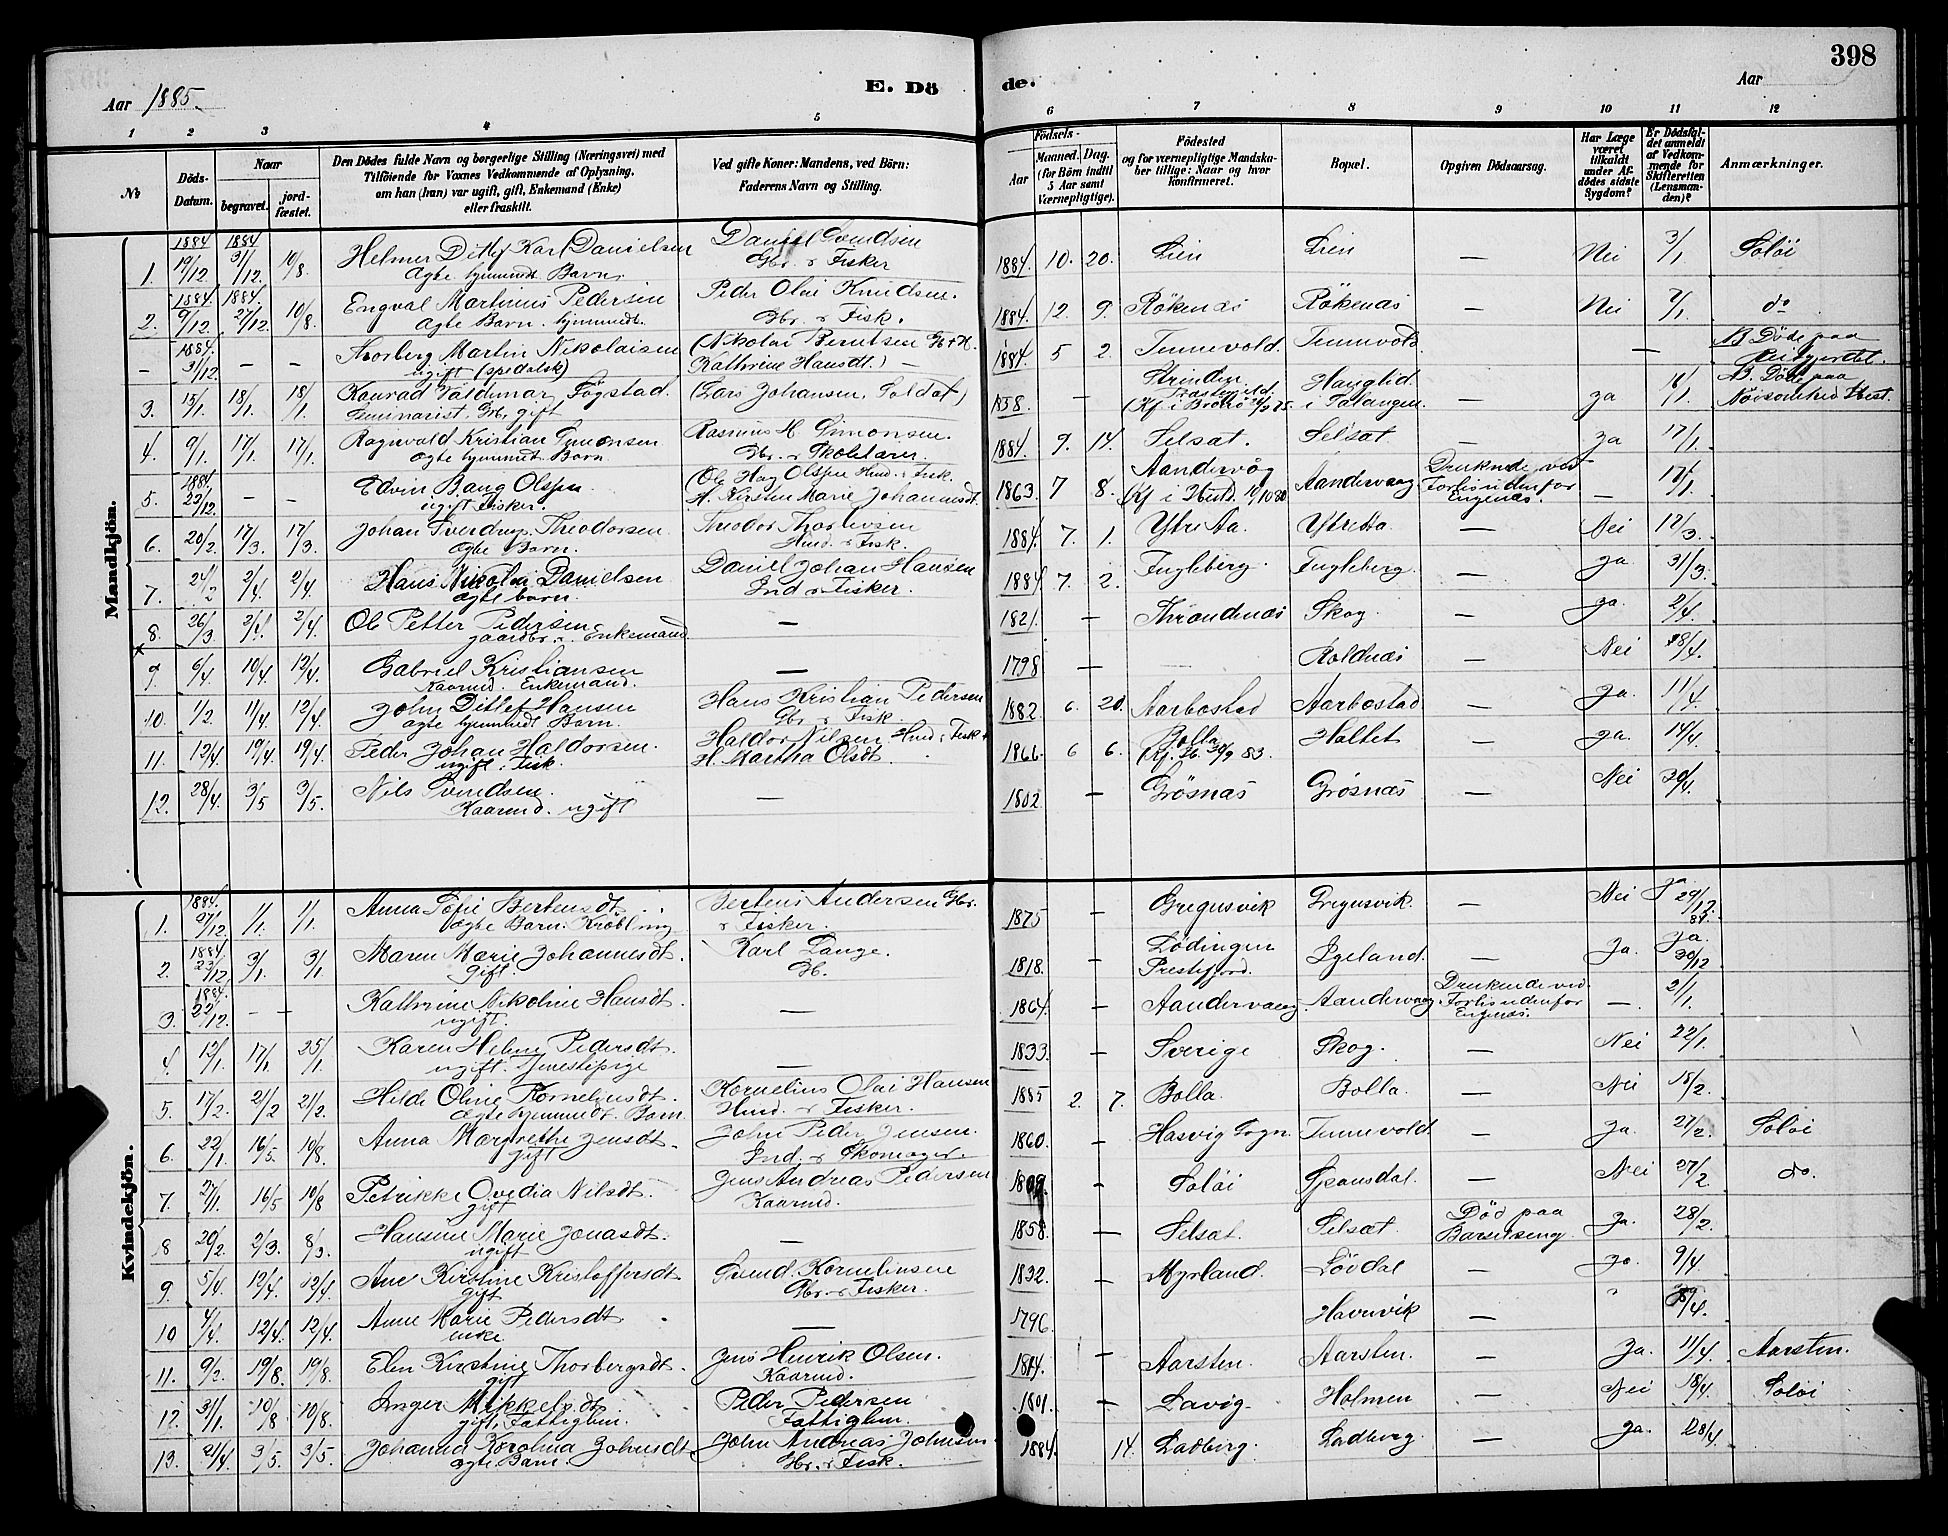 398
Aar 1885.
E. Dö
de.
Aar
1 2 3 4 5 6 7 8 9 10 11 12
No
Döds-
Datum.
Naar
begravet.
jord-
fæstet.
Den Dödes fulde Navn og borgerlige Stilling (Næringsvei) med
Tilföiende for Voxnes Vedkommende af Oplysning,
om han (hun) var ugift, gift, Enkemand (Enke)
eller fraskilt.
Ved gifte Koner: Mandens, ved Börn:
Faderens Navn og Stilling.
Födsels-
Aar
Maaned. Dag.
(for Börn indtil
5 Aar samt
Værnepligtige).
Födested
og for værnepligtige Mandska-
ber tillige: Naar og hvor
konfirmeret.
Bopæl.
Opgiven Dödsaarsag.
Har Læge
været
tilkaldt
under Af-
dödes sidste
Sygdom?
Er Dödsfal-
det anmeldt
af Vedkom-
mende for
Skifteretten
(Lensman-
den)?
Anmærkninger.
Mandkjön.
1. 1884 19/12. 1884 31/12. 10/8. Helmer Ditlef Karl Danielsen Daniel Svendsen 1884. 10. 20. Lien Lien — Nei 3/1 Soløi
Ægte hjemmedt. Barn. Gbr. & Fisker
2. 1884. 9/12. 1884. 27/12. 10/8. Engval Martinus Pedersen Peder Olai Knudsen. 1884. 12. 9. Rökenæs Rökenæs — Nei 7/1. do
Ægte Barn. hjemmedt. Gbr. & Fisk.
— 1884. 31/12. — — Thorberg Martin Nikolaisen (Nikolai Berntsen 1884 5 2. Tennevold. Tennevold — B. Döde paa
ugift (spedalsk) Kathrine Hansdt.) —
3. 15/1. 18/1. 18/1. Konrad Valdemar Fögstad. (Lars Johansen, Soldat) 1858. — Strinden Hauglid ja 16/1. B. Döde paa
Seminarist. Gbr. gift i Salangen.
4. 9/1. 17/1. 17/1. Ragnvald Kristian Simonsen Rasmus H. Simonsen. 1884. 9. 14. Selsæt. Selsæt — ja 17/1.
ægte hjemmedt. Barn Gbr. & Skolelærer.
5. 1884. 23/12. — — Edvin Bang Olsen (Ole Hag Olsen Hmd. & Fisk. 1863. 7 8. Aandervåg Aandervaag Druknede ved — 18/1.
ugift Fisker. H. Kirsten Marie Johannesdt. Forlis udenfor
Engenæs.
6. 20/2. 17/3. 17/3. Johan Sverdrup Theodorsen Theodor Thorleivsen 1884. 7. 1. Ytre Aa Ytre Aa — Nei 12/3.
Ægte Barn. Hmd. & Fisk.
7. 24/2 2/4. 2/4. Hans Nikolai Danielsen Daniel Johan Hansen 1884 7. 2. Fugleberg. Fugleberg. — ja 31/3.
ægte barn. Ind. & Fisker.
8. 26/3 2/4. 2/4. Ole Petter Pedersen — 1821. — Throndenæs Skog. — ja. 2/4.
gaardbr. Enkemand
9. 6/4. 10/4. 12/4. Gabriel Kristiansen — 1798 — Roldnæs — Nei 8/4.
Kaarmd. Enkemand.
10. 1/2. 11/4. 12/4. John Ditlef Hansen Hans Kristian Pedersen 1882. 6. 20. Aarbostad Aarbostad — ja. 11/4.
ægte hjemmedt. Barn. Gbr. & Fisk.
11. 13/4. 19/4. 19/4. Peder Johan Haldorsen. Haldor Nilsen, Hmd. & Fisk. 1866. 6 6. Bolla Haltet — ja. 14/4.
ugift. Fisk. H. Martha Olsdt.
12. 28/4. 3/5 3/5. Nils Svendsen. — 1802 — Grøsnæs Grøsnæs — Nei 30/4.
Kaarmd. ugift
Kvindekjön.
1. 1884. 27/12. 1/1. 1/1. Anna Sofie Bertensdt. Bertens Andersen Gbr. 1875 — Gregusvik Gregusvik. — Nei 29/12 84
ægte Barn. Krøbling & Fisker.
2. 1884. 23/12 3/1. 3/1 Maren Marie Johannesdt. Karl Lange. 1818. — Lødingen Igeland. — Ja. Ja. 30/12
Gift. Gb. Prestefjord.
3. 1884. 22/12. — — Kathrine Nikoline Hansdt. — 1864. — Aandervaag. Aandervaag Druknede ved — 2/1.
ugift. Forlis udenfor
Engenæs.
4. 12/1. 17/1 25/1. Karen Helene Pedersdt. — 1833. — Sverige Skog. — Nei 22/1.
ugift. Tjenestepige
5. 17/2. 21/2 21/2. Hilda Oline Kornelinsdt. Kornelius Olai Hansen 1885 2. 7. Bolla. Bolla. — Nei 18/2.
Ægte hjemmedt. Barn. Hmd. & Fisker.
6. 22/1. 16/5. 10/8. Anna Margrethe Jensdt. John Peder Jensen. 1860. — Hasvig Sogn. Tennevold. — Ja. 21/2. Soløi
gift Ind. & Skomager
7. 27/1. 16/5 10/8 Petrikke Ovedia Nilsdt. Jens Andreas Pedersen — Soløi — Nei 27/2. do.
gift Kaarmd.
8 20/2. 2/3. 8/3. Hansine Marie Jonasdt. — 1858. — Selsæt. Selsæt. Död paa Ja. 28/2.
ugift Barselseng.
9. 5/4. 12/4. 12/4. Ane Kirstine Kristoffersdt. Svend. Korneliusen 1832. — Myrland. Lövdal — Ja. 9/4.
gift Gbr. & Fisker.
10 4/4. 12/4. 12/4. Anne Marie Pedersdt. — 1796. Havnvik —
enke
11. 9/2. 19/8. 19/8. Elen Kirstine Thorbergsdt. Jens Henrik Olsen. — Aarsten. Aarsten. — Ja. 11/4. Aarsten.
gift Kaarmd.
12. 31/1. 10/8 10/8. Inger Mikkelsdt. Peder Pedersen 1801. — Lavig. Holmen — Nei 18/4. Soløi
gift, Fattiglem. Fattiglem.
13. 21/4. 3/5. 3/5. Johanna Karolina Johnsdt. John Andreas Johnsen. 1884. 14. Ladberg. Ladberg. — Ja. 28/4.
ægte Barn. Gbr. & Fisk.